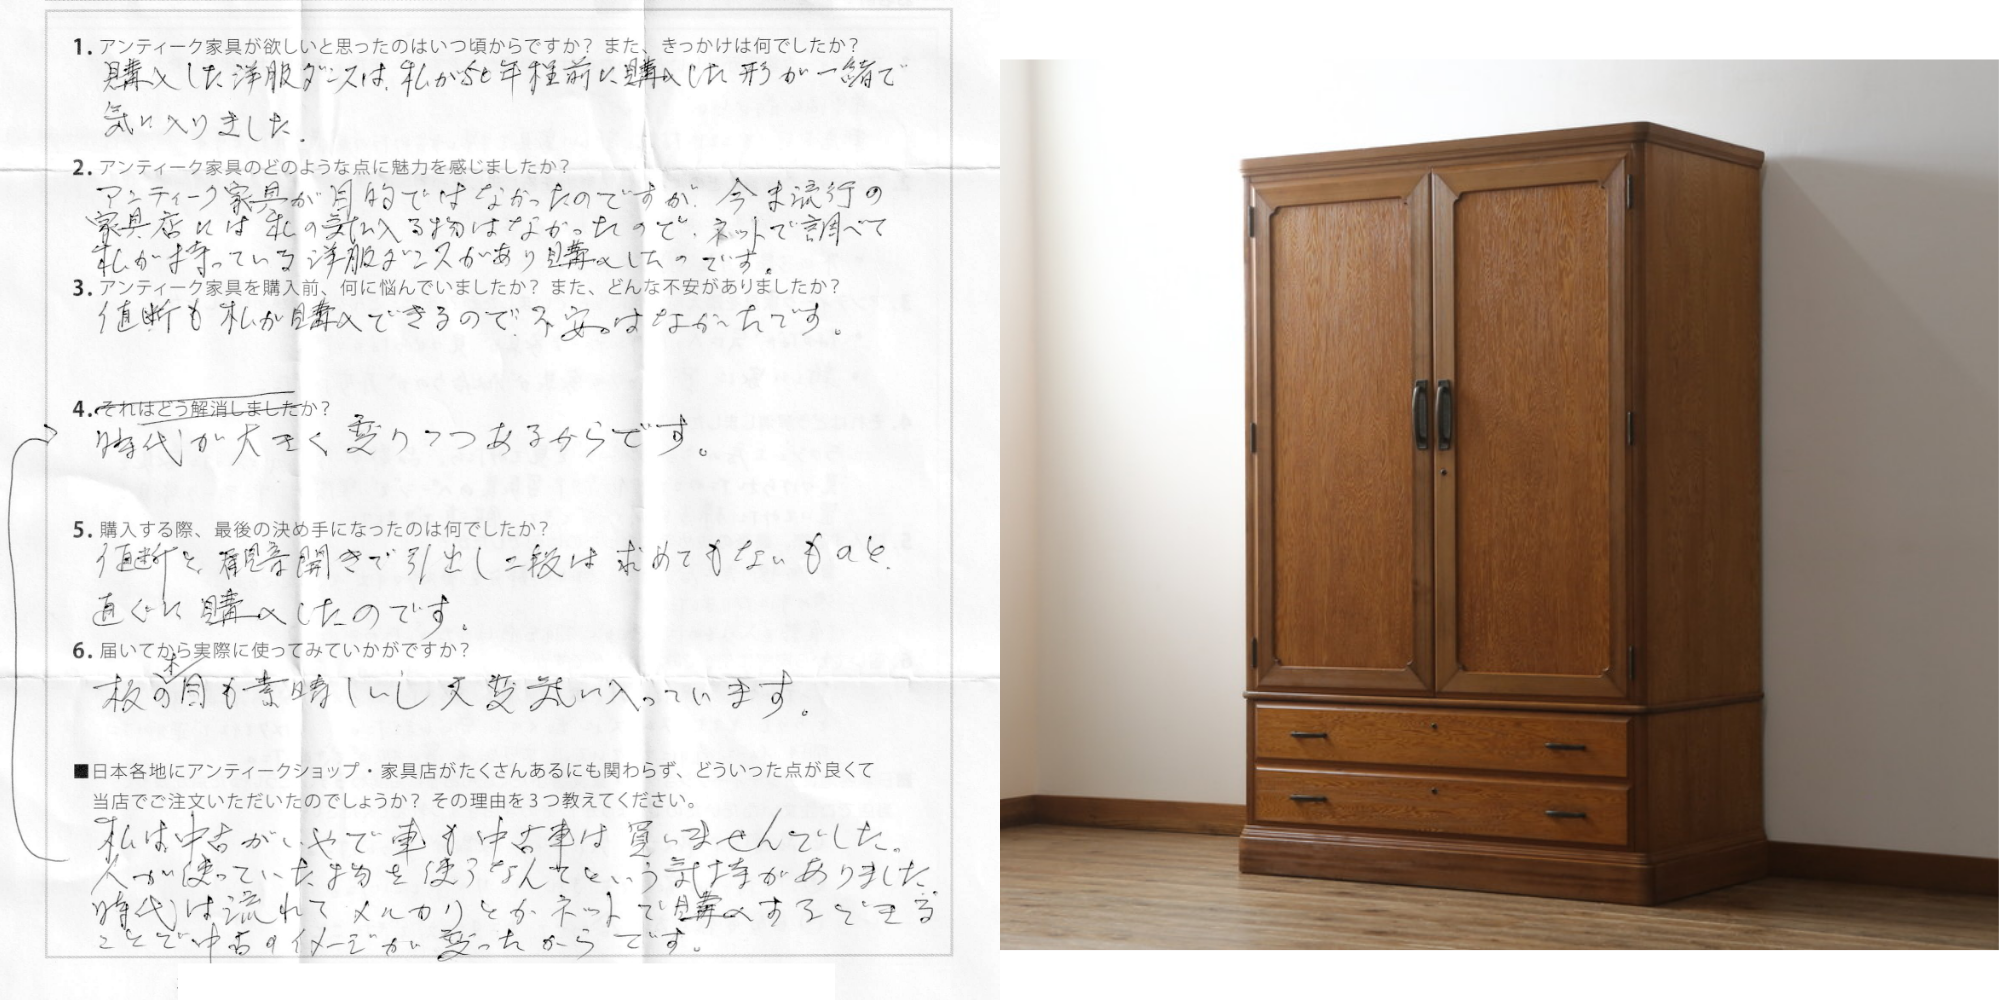 1. アンティーク家具が欲しいと思ったのはいつ頃からですか？ また、きっかけは何でしたか？
購入した洋服ダンスは、私が50年程前に購入した形が一緒で
気に入りました.
2. アンティーク家具のどのような点に魅力を感じましたか？
アンティーク家具が目的ではなかったのですが、今ま流行の
家具店には私の気に入る物はなかったので、ネットで調べて
私が持っている洋服ダンスがあり購入したのです。
3. アンティーク家具を購入前、何に悩んでいましたか？ また、どんな不安がありましたか？
値断も私が購入できるので、不安はなかったです。
4. それはどう解消しましたか？
時代が大きく変りつつあるからです。
5. 購入する際、最後の決め手になったのは何でしたか？
値断と、観音開きで引出し二段は求めてもないものと、
直ぐに購入したのです。
6. 届いてから実際に使ってみていかがですか？
板の木目も素晴しいし大変気に入っています。
■日本各地にアンティークショップ・家具店がたくさんあるにも関わらず、どういった点が良くて
当店でご注文いただいたのでしょうか？ その理由を3つ教えてください。
私は中古がいやで車も中古車は買いませんでした。
人が使っていた物を使うなんてという気持がありました。
時代は流れてメルカリとかネットで購入するできる
ことで中古のイメージが変ったからです。